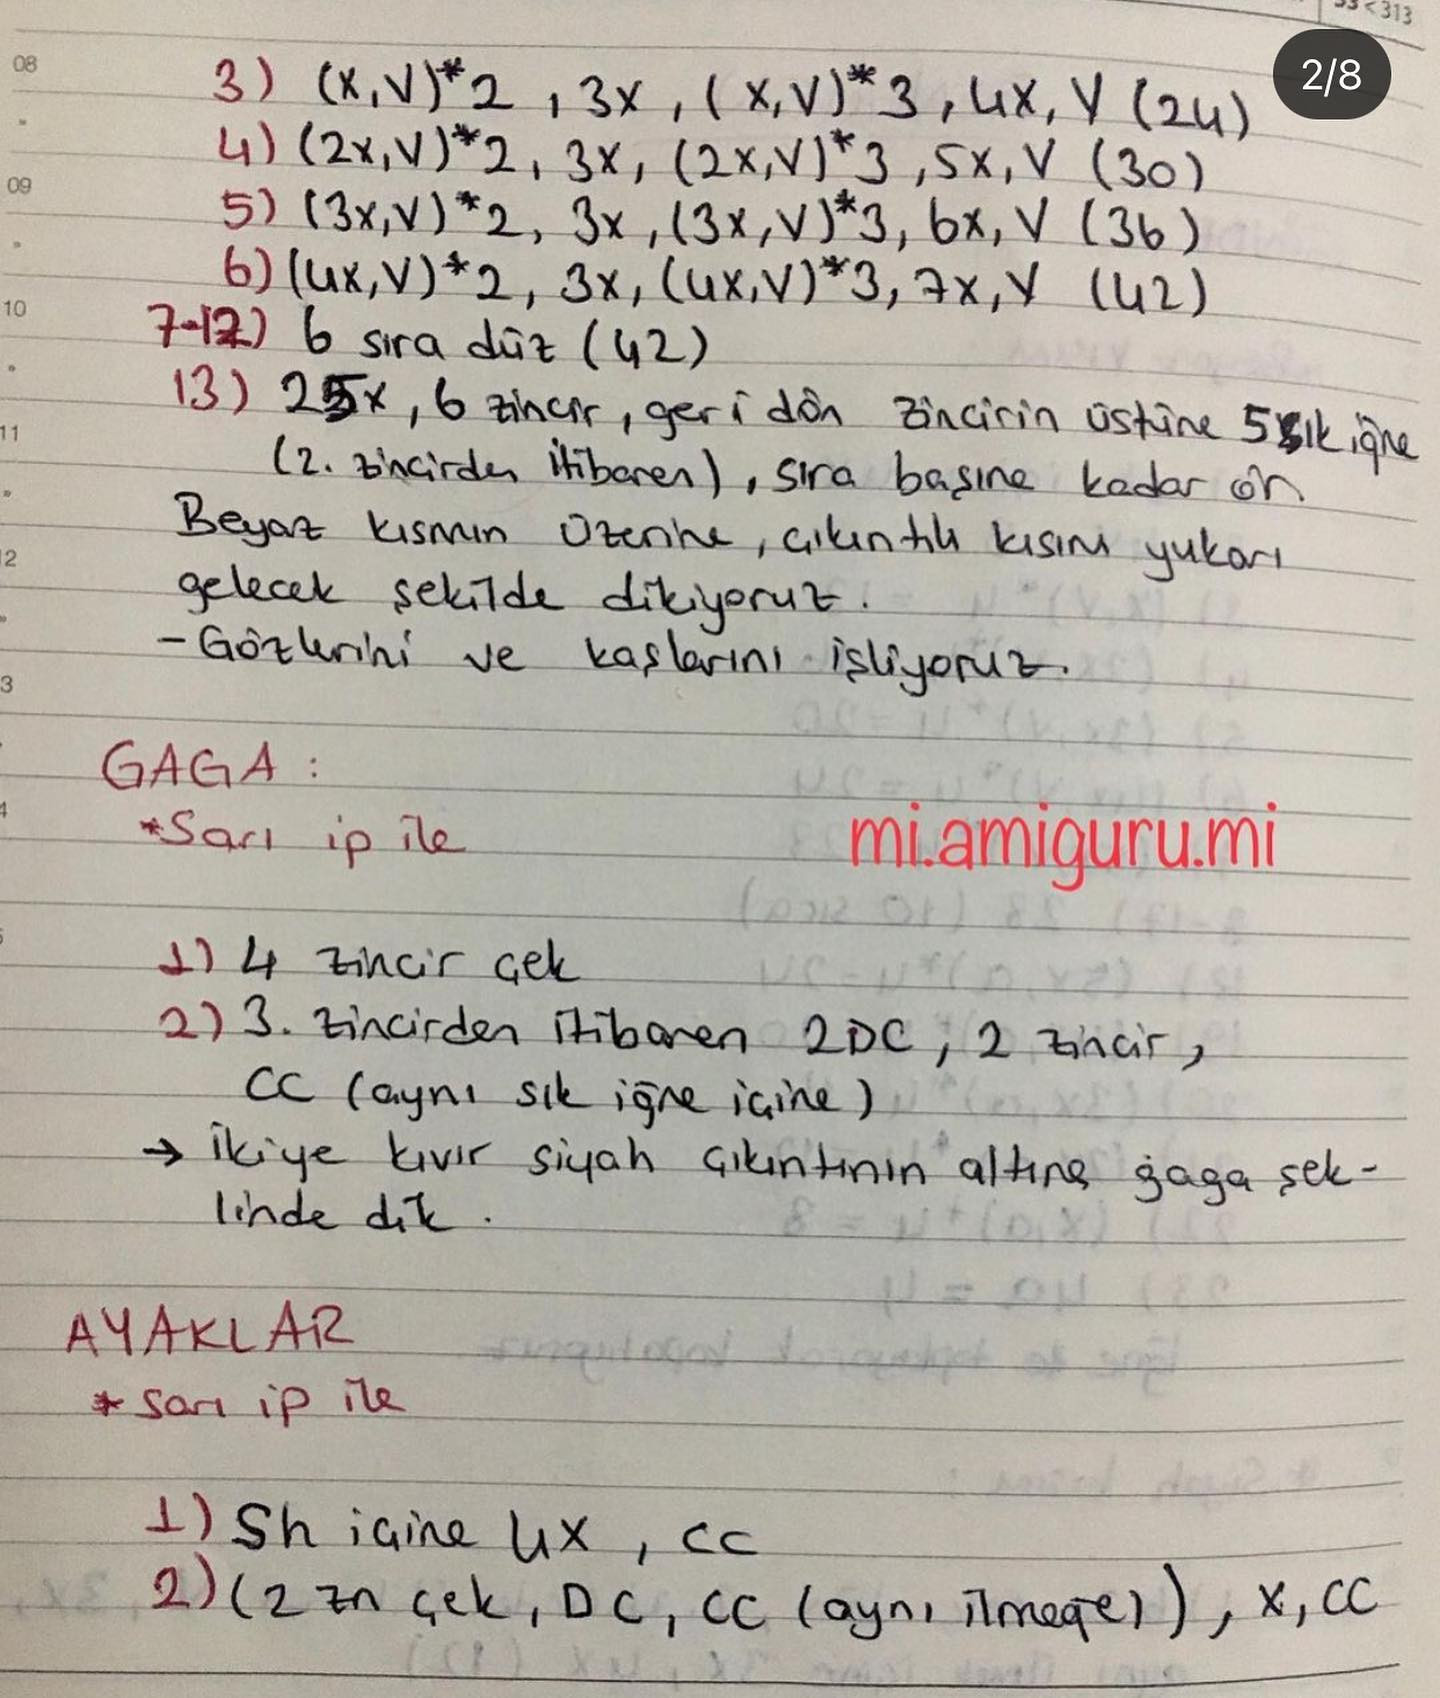 33<313
2/8
08
3) (x,v)*2 , 3x , (x,v)*3 , 4x, v (24)
4) (2x,v)*2, 3x, (2x,v)*3 , 5x, v (30)
09
5) (3x,v)*2, 3x, (3x,v)*3, 6x, v (36)
6) (4x,v)*2, 3x, (4x,v)*3, 7x, v (42)
10
7-12) 6 sıra düz (42)
13) 25x, 6 zincir, geri dön zincirin üstüne 5 sık iğne
11
(2. zincirden itibaren), sıra başına kadar ör.
Beyaz kısmın üzerine, çıkıntılı kısım yukarı
12
gelecek şekilde dikiyoruz.
- Gözlerini ve kaşlarını işliyoruz.
GAGA :
*Sarı ip ile
mi.amiguru.mi
1) 4 zincir çek
2) 3. zincirden itibaren 2DC, 2 zincir,
CC (aynı sık iğne içine)
→ İkiye kıvır siyah çıkıntının altına gaga şek-
linde dik.
AYAKLAR
* Sarı ip ile
1) Sh içine 4x, cc
2) (2 zn çek, DC, CC (aynı ilmeğe)), x, CC